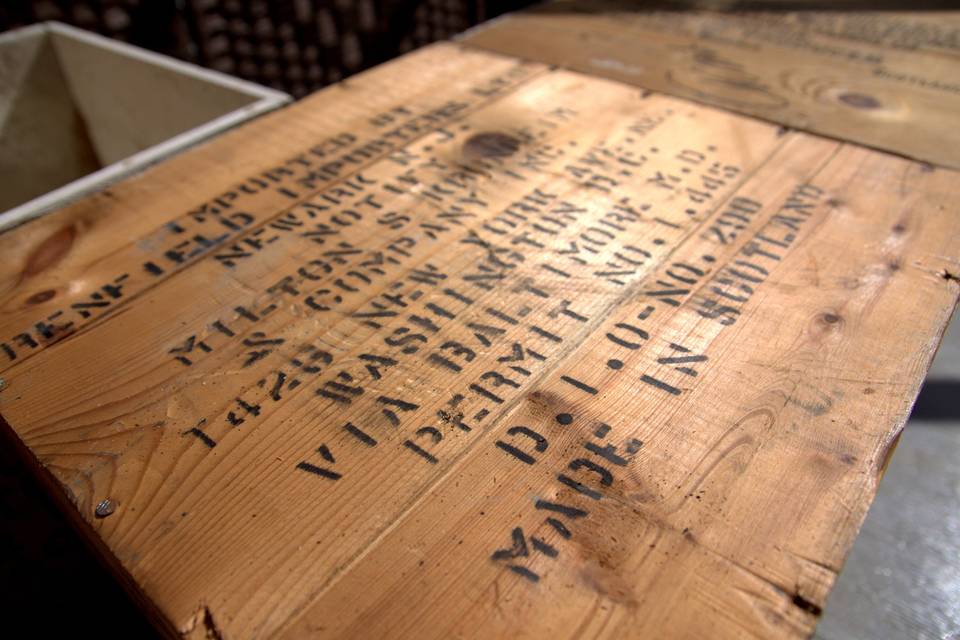 IMPORTED BY
RENFIELD IMPORTERS LTD.
NEWARK N. J.
NOT I. F.
MILTON S. KRONHEIM
& COMPANY INC.
1428 NEW YORK AVE. N.E.
WASHINGTON D.C.
VIA BALTIMORE M.D.
PERMIT NO. I.
D.I.O-NO. 290
MADE IN SCOTLAND